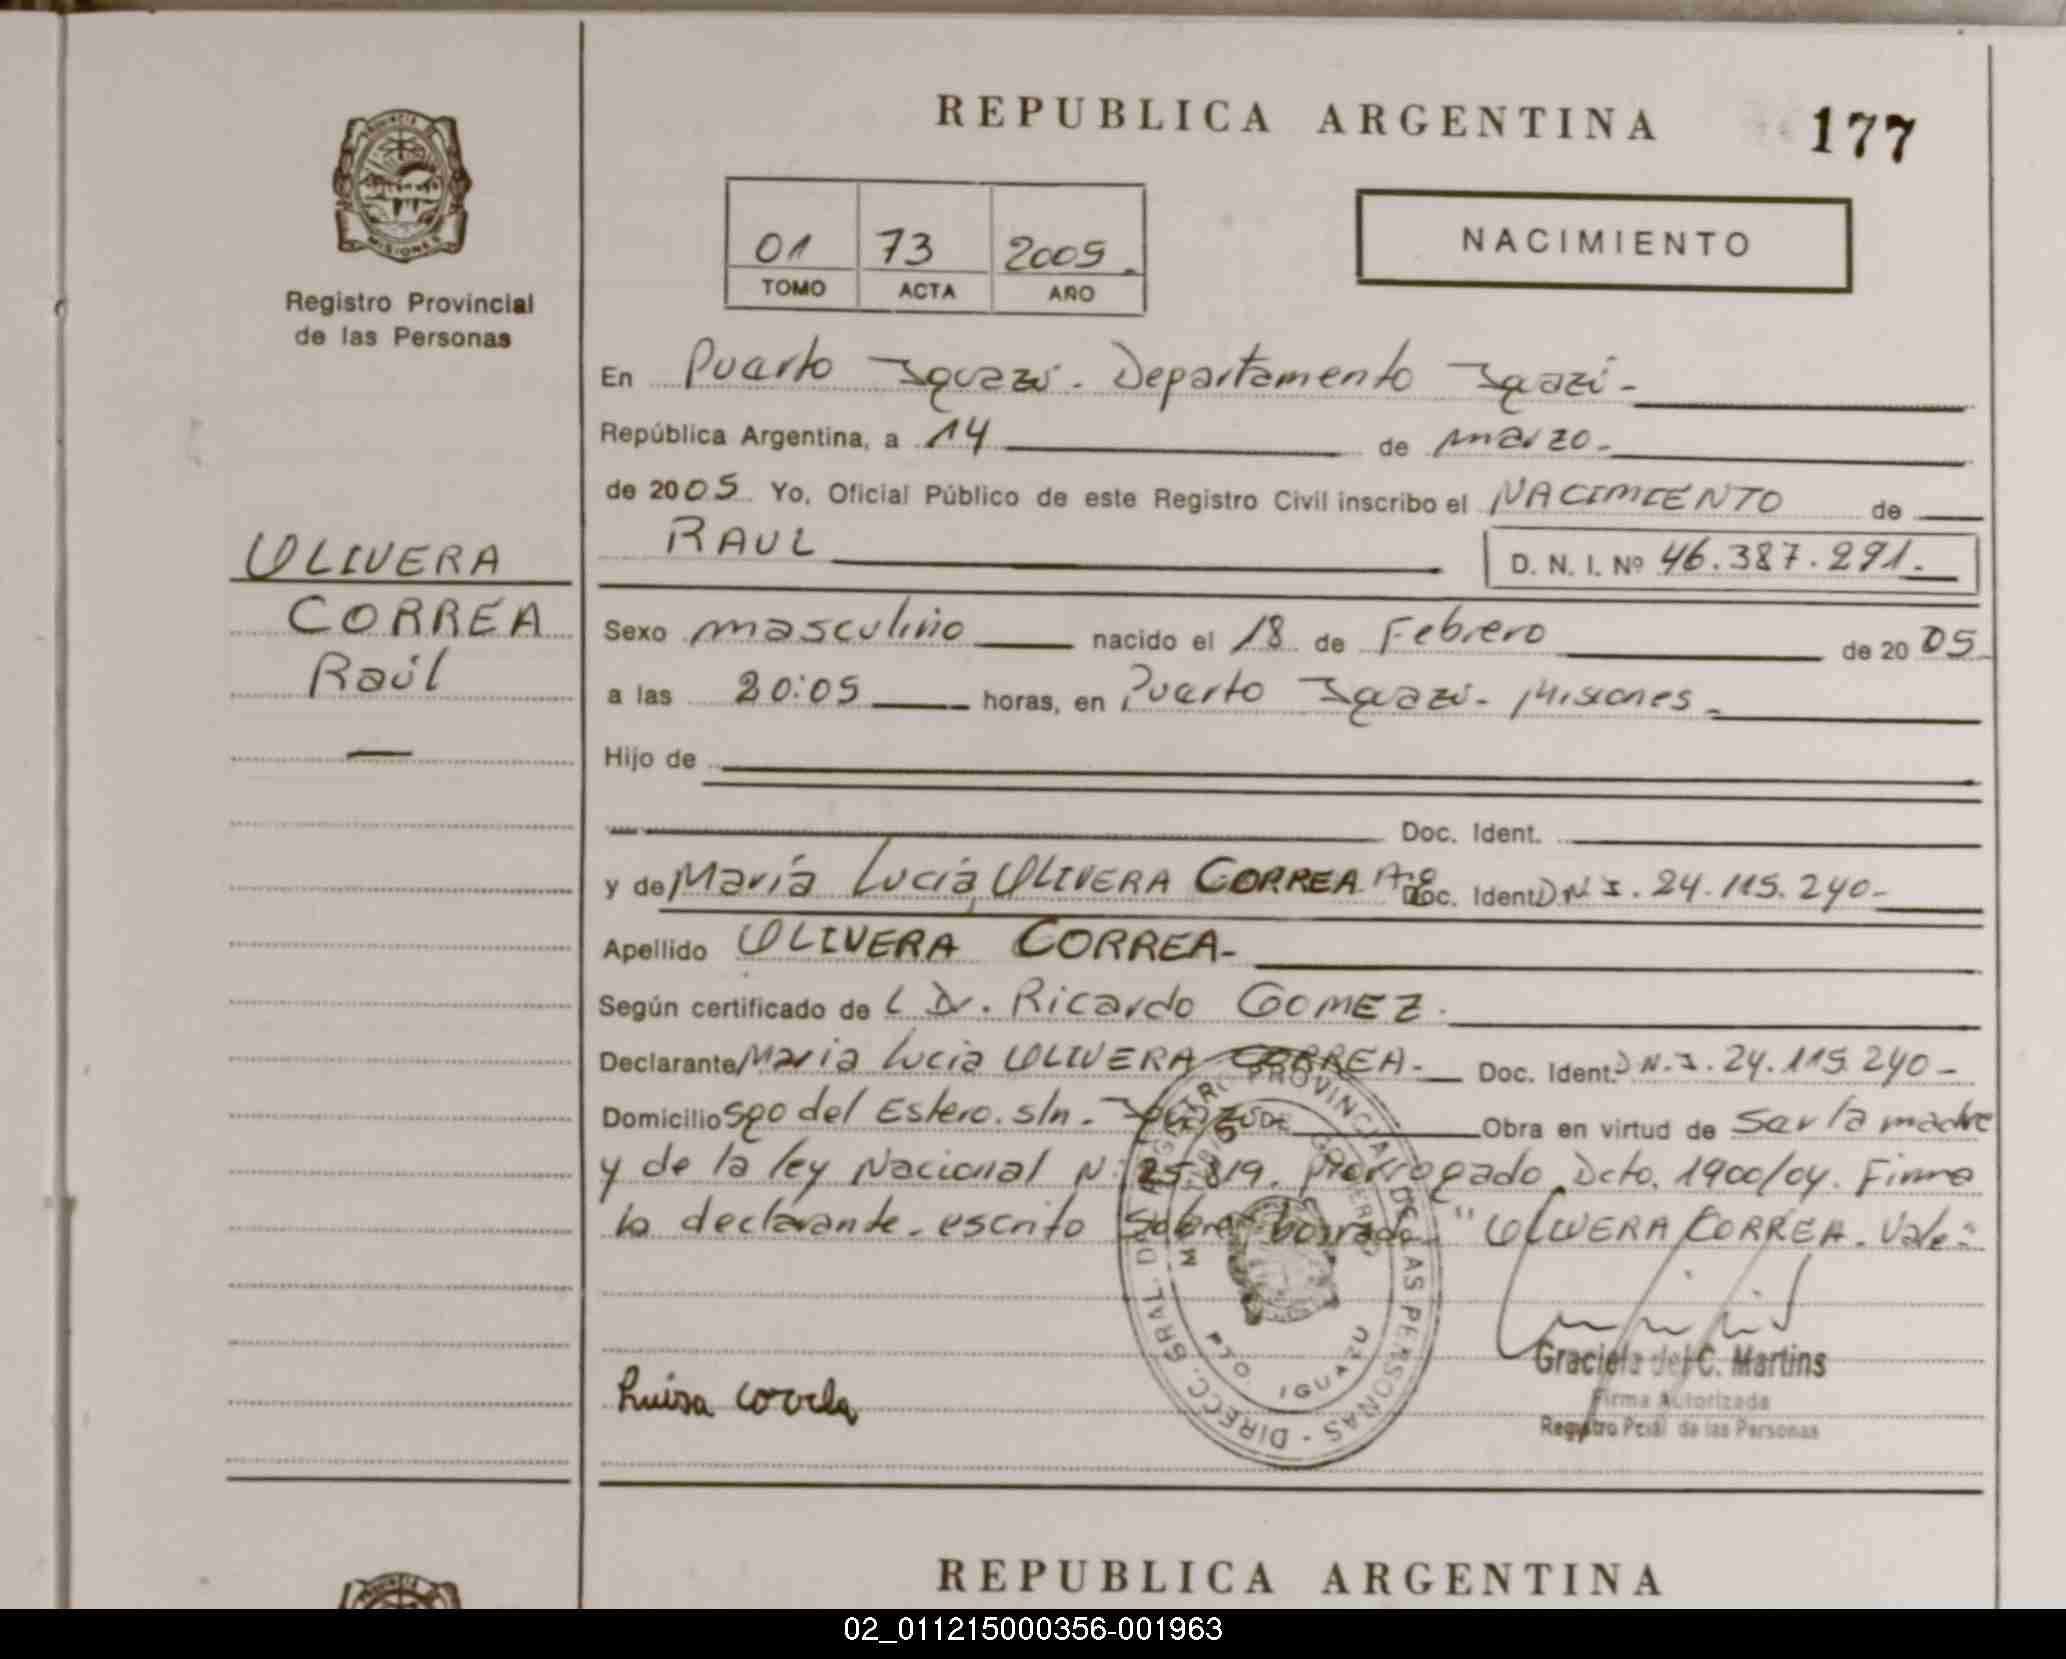 REPUBLICA ARGENTINA 177
PROVINCIA DE
MISIONES
Registro Provincial
de las Personas
01 73 2005.
TOMO ACTA AÑO
NACIMIENTO
En Puerto Iguazú - Departamento Iguazú -
República Argentina, a 14 de marzo -
de 2005 Yo, Oficial Público de este Registro Civil inscribo el NACIMIENTO de
RAUL D. N. I. Nº 46.387.291.
OLIVERA
CORREA
Raúl
Sexo masculino nacido el 18 de Febrero de 2005
a las 20:05 horas, en Puerto Iguazú - Misiones -
Hijo de
Doc. Ident.
y de María Lucía OLIVERA CORREA Doc. Ident D.N.I. 24.115.240-
Apellido OLIVERA CORREA-
Según certificado de L Dr. Ricardo GOMEZ.
Declarante Maria Lucia OLIVERA CORREA- Doc. Ident. D.N.I. 24.115.240-
Domicilio Sgo del Estero. s/n - Iguazú Obra en virtud de Ser la madre
y de la ley Nacional N: 25.819. Prorrogado Dcto. 1900/04. Firma
la declarante - escrito Sobre borrado - "OLIVERA CORREA. Vale-
DIRECC. GRAL. DEL REGISTRO PROVINCIAL DE LAS PERSONAS -
GOBIERNO
PTO. IGUAZU
Luisa correa
Graciela del C. Martins
Firma Autorizada
Registro Pcial de las Personas
REPUBLICA ARGENTINA
02_011215000356-001963